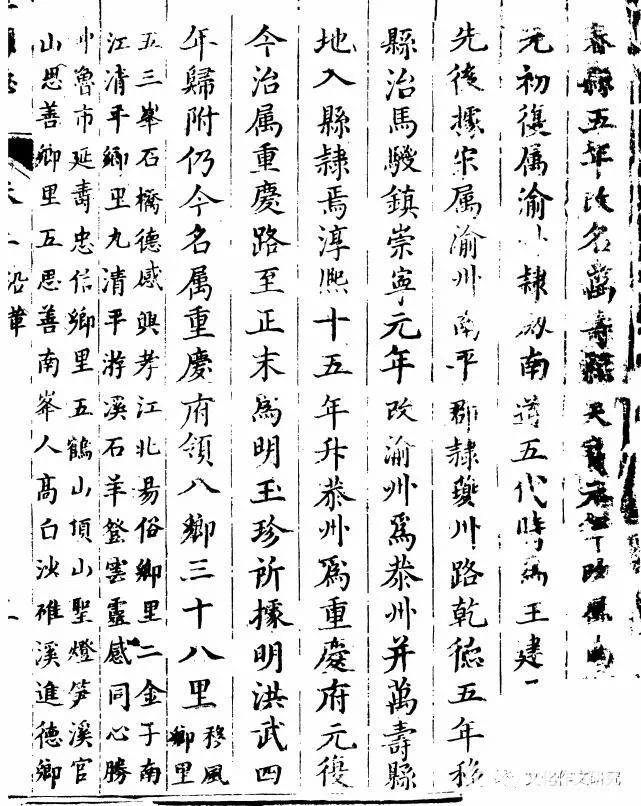 春縣五年改名萬壽縣天寶元年
元初復属渝州隸劍南道五代時為王建
先後據宋属渝州南平郡隸夔州路乾德五年移
縣治馬騣鎮崇寧元年改渝州爲恭州并萬壽縣
地入縣隸焉淳熙十五年升恭州爲重慶府元復
今治属重慶路至正末爲明玉珍所據明洪武四
年歸附仍今名属重慶府領八鄉三十八里移風
鄉里
五三峯石橋德感興孝江北易俗鄉里二金子南
江清平鄉里九清平游溪石羊登雲靈感同心勝
冲魯市延壽忠信鄉里五鶴山頂山聖燈笋溪官
山思善鄉里五思善南峯人髙白沙碓溪進德鄉
沿革